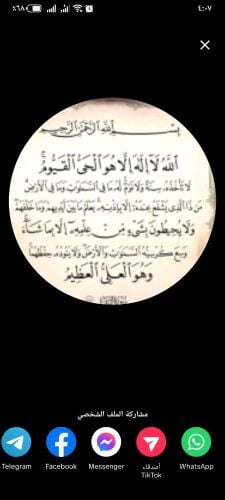 ٤:٠٧
٪٦٨
بسم الله الرحمن الرحيم
الله لا إله إلا هو الحي القيوم
لا تأخذه سنة ولا نوم له ما في السموات وما في الأرض
من ذا الذي يشفع عنده إلا بإذنه يعلم ما بين أيديهم وما خلفهم
ولا يحيطون بشيء من علمه إلا بما شاء
وسع كرسيه السموات والأرض ولا يؤوده حفظهما
وهو العلي العظيم
مشاركة الملف الشخصي
WhatsApp
أصدقاء TikTok
Messenger
Facebook
Telegram